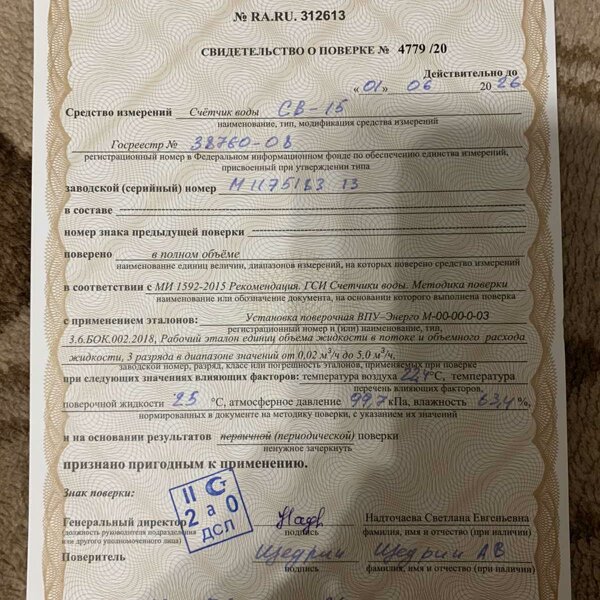 № RA.RU. 312613
СВИДЕТЕЛЬСТВО О ПОВЕРКЕ № 4779 /20
Действительно до
«01» 06 2026
Средство измерений Счётчик воды СВ-15
наименование, тип, модификация средства измерений
Госреестр № 38760-08
регистрационный номер в Федеральном информационном фонде по обеспечению единства измерений,
присвоенный при утверждении типа
заводской (серийный) номер
в составе
номер знака предыдущей поверки
поверено в полном объёме
наименование единиц величин, диапазонов измерений, на которых поверено средство измерений
в соответствии с МИ 1592-2015 Рекомендация. ГСИ Счетчики воды. Методика поверки
наименование или обозначение документа, на основании которого выполнена поверка
с применением эталонов: Установка поверочная ВПУ–Энерго М-00-00-0-03
регистрационный номер и (или) наименование, тип,
3.6.БОК.002.2018, Рабочий эталон единиц объема жидкости в потоке и объемного расхода
жидкости, 3 разряда в диапазоне значений от 0,02 м³/ч до 5,0 м³/ч,
заводской номер, разряд, класс или погрешность эталонов, применяемых при поверке
при следующих значениях влияющих факторов: температура воздуха °С, температура
перечень влияющих факторов,
поверочной жидкости 25 °С, атмосферное давление 99,7 кПа, влажность 63,4 %,
нормированных в документе на методику поверки, с указанием их значений
и на основании результатов первичной (периодической) поверки
ненужное зачеркнуть
признано пригодным к применению.
Знак поверки:
II
2 а 0
ДСЛ
Генеральный директор Надточаева Светлана Евгеньевна
(должность руководителя подразделения подпись фамилия, имя и отчество (при наличии)
или другого уполномоченного лица)
Поверитель Щедрин Щедрин АВ
подпись фамилия, имя и отчество (при наличии)